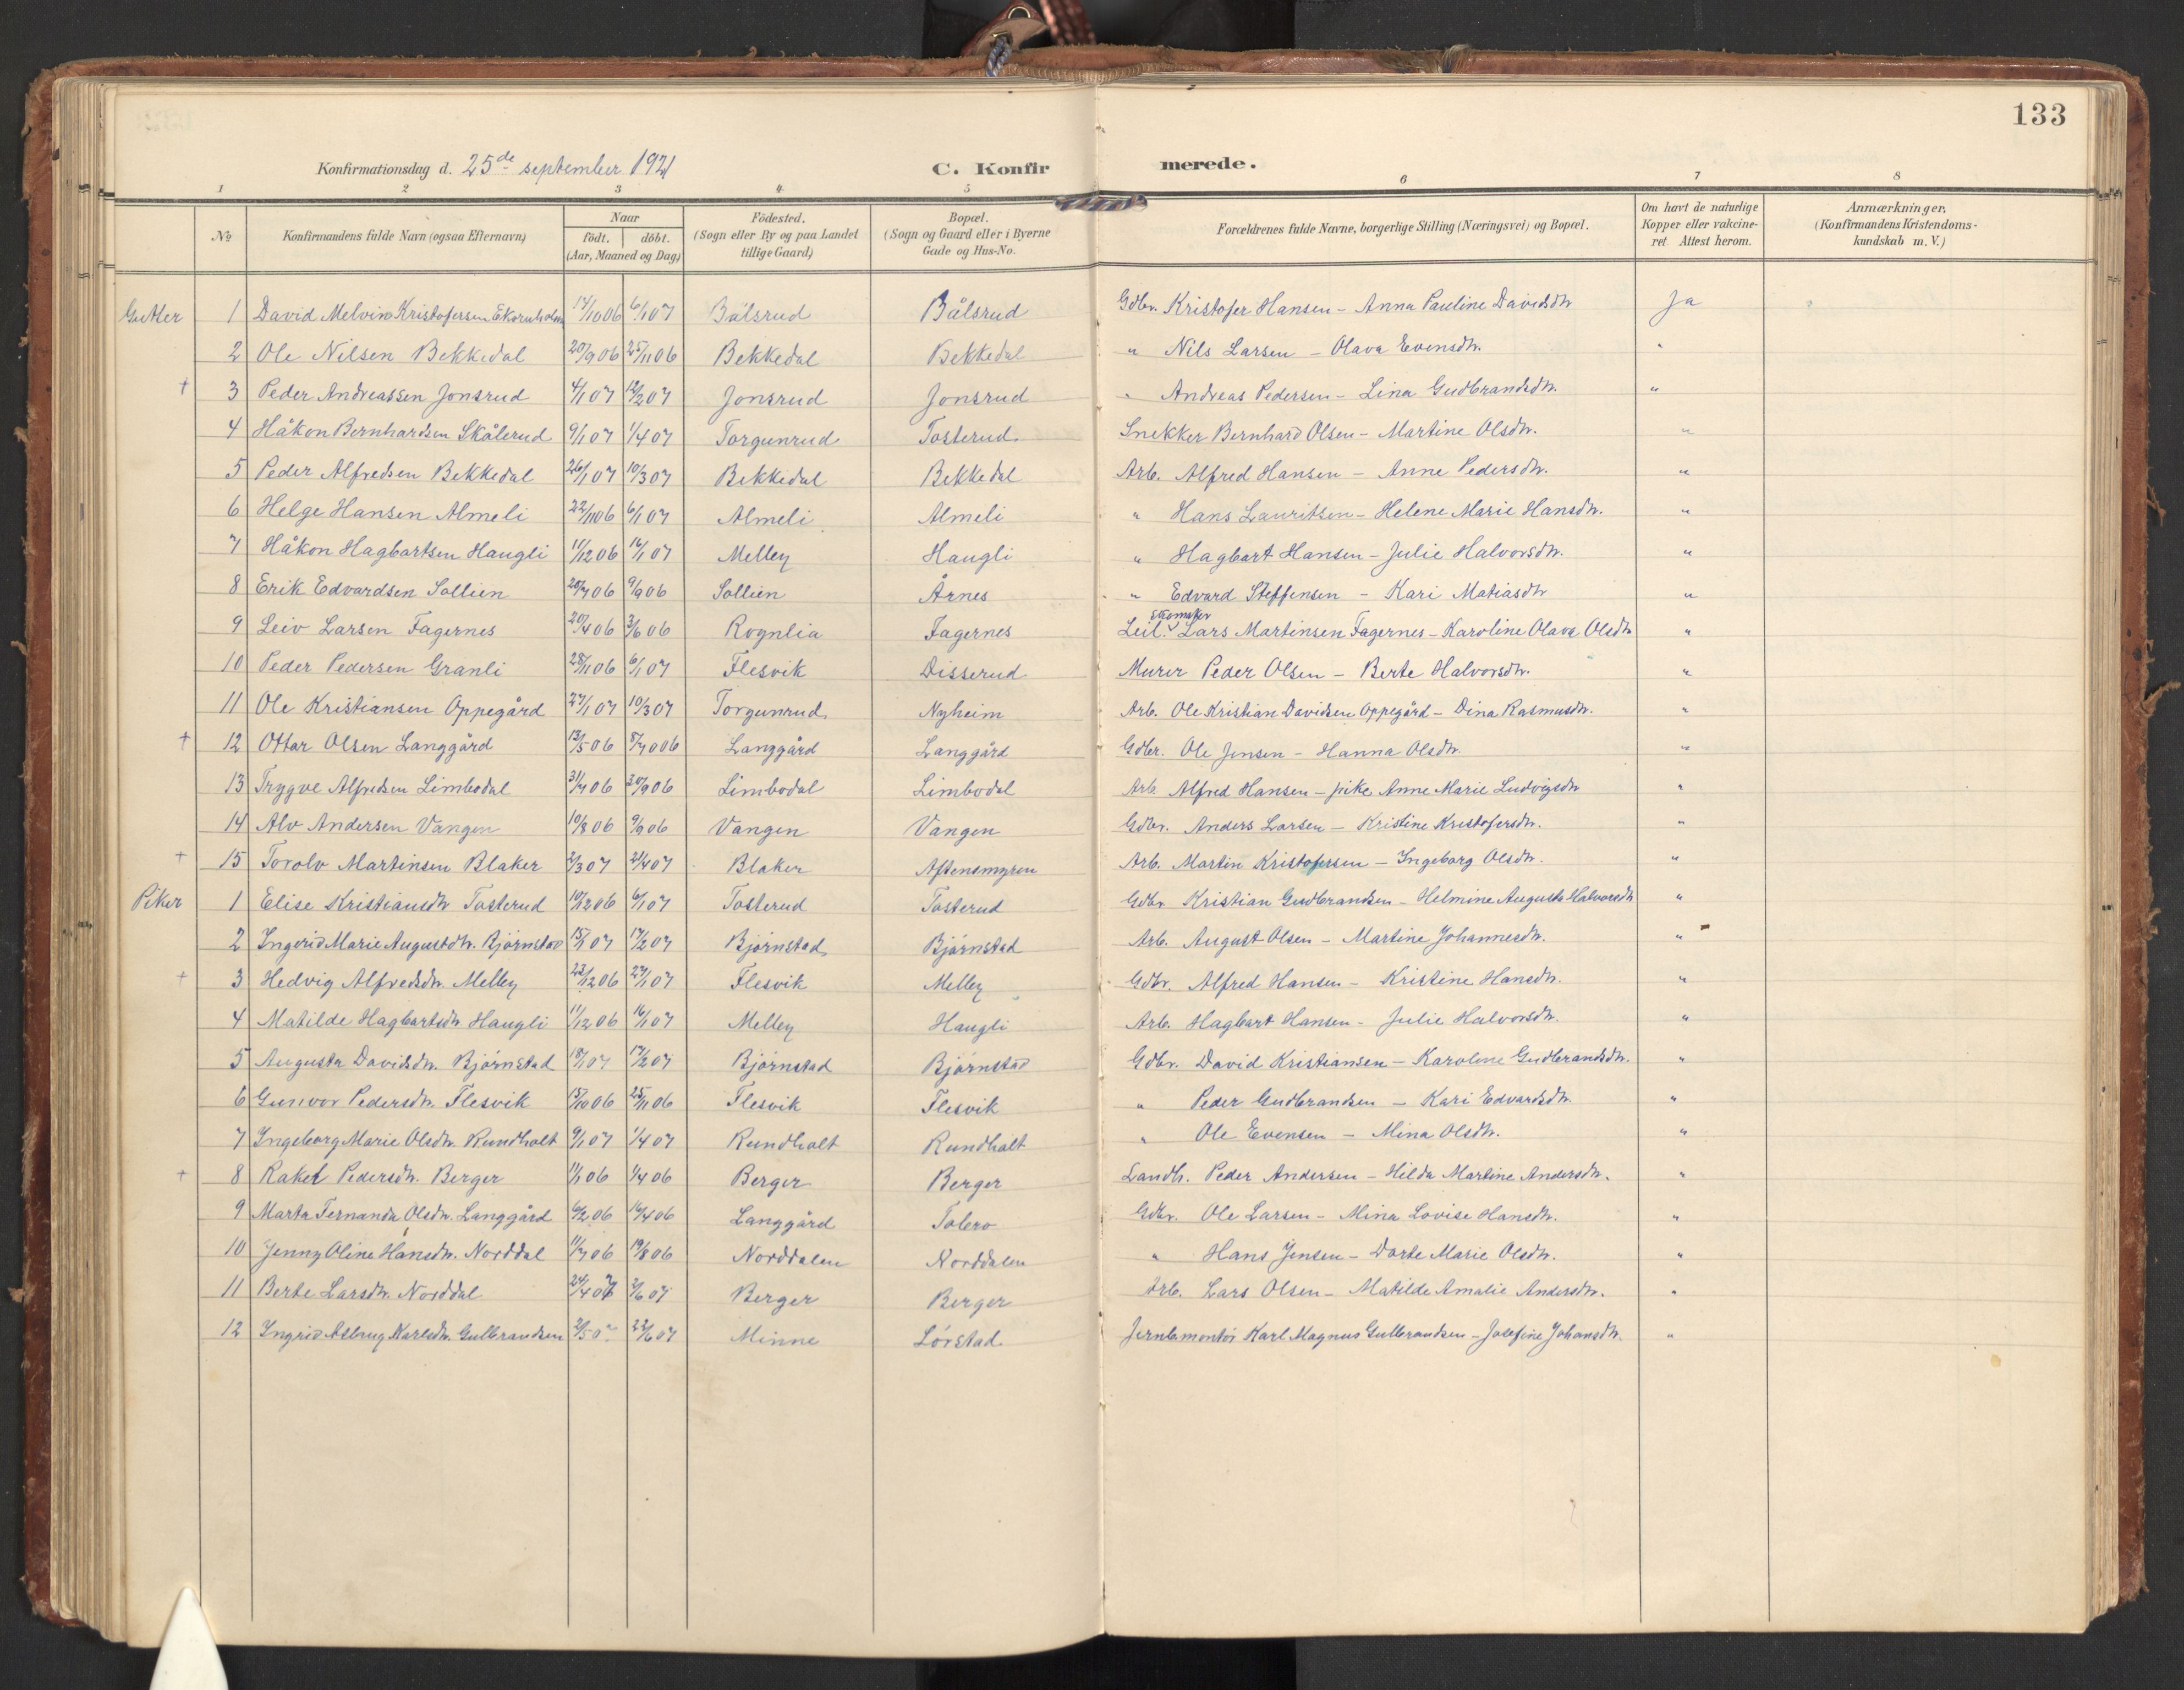 133
Konfirmationsdag d. 25de september 1921 C. Konfirmerede.
1 2 3 4 5 6 7 8
No Konfirmandens fulde Navn (ogsaa Efternavn) Naar födt. döbt. (Aar, Maaned og Dag) Födested. (Sogn eller By og paa Landet tillige Gaard) Bopæl. (Sogn og Gaard eller i Byerne Gade og Hus-No. Forældrenes fulde Navne, borgerlige Stilling (Næringsvei) og Bopæl. Om havt de naturlige Kopper eller vakcineret Attest herom. Anmærkninger. (Konfirmandens Kristendomskundskab m. V.)
Gutter 1 David Melvin Kristofersen Ekornholm 17/10 06 6/1 07 Bålsrud Bålsrud Gdbr. Kristofer Hansen - Anna Pauline Davidsdtr Ja
2 Ole Nilsen Bekkedal 20/9 06 25/11 06 Bekkedal Bekkedal " Nils Larsen - Olava Evensdtr. "
+ 3 Peder Andreassen Jonsrud 4/1 07 12/2 07 Jonsrud Jonsrud " Andreas Pedersen - Lina Gudbrandsdtr. "
4 Håkon Bernhardsen Skålerud 9/1 07 1/4 07 Torgunrud Tosterud Snekker Bernhard Olsen - Martine Olsdtr. "
5 Peder Alfredsen Bekkedal 26/1 07 10/3 07 Bekkedal Bekkedal Arb. Alfred Hansen - Anne Pedersdtr. "
6 Helge Hansen Almeli 22/11 06 6/1 07 Almeli Almeli " Hans Lauritsen - Helene Marie Hansdtr. "
7 Håkon Hagbartsen Haugli 11/12 06 16/1 07 Melley Haugli " Hagbart Hansen - Julie Halvorsdtr. "
8 Erik Edvardsen Sollien 20/7 06 9/9 06 Sollien Årnes " Edvard Steffensen - Kari Matiasdtr "
9 Leiv Larsen Fagernes 20/4 06 3/6 06 Rognlia Fagernes Leil. Skomaker Lars Martinsen Fagernes - Karoline Olava Olsdtr "
10 Peder Pedersen Granli 28/11 06 6/1 07 Flesvik Disserud Murer Peder Olsen - Berte Halvorsdtr. "
11 Ole Kristiansen Oppegård 27/1 07 10/3 07 Torgunrud Nyheim Arb. Ole Kristian Davidsen Oppegård - Dina Rasmusdtr. "
+ 12 Ottar Olsen Langgård 13/5 06 8/7 006 Langgård Langgård Gdbr. Ole Jensen - Hanna Olsdtr. "
13 Trygve Alfredsen Limbodal 31/7 06 30/9 06 Limbodal Limbodal Arb. Alfred Hansen - pike Anne Marie Ludvigsdtr "
14 Alv Andersen Vangen 10/8 06 9/9 06 Vangen Vangen Gdbr. Anders Larsen - Kristine Kristofersdtr. "
+ 15 Torolv Martinsen Blaker 2/3 07 21/4 07 Blaker Aftensmyren Arb. Martin Kristofersen - Ingeborg Olsdtr. "
Piker 1 Elise Kristiansdtr Tosterud 10/12 06 6/1 07 Tosterud Tosterud Gdbr. Kristian Gudbrandsen - Helmine Augusta Halvorsdtr "
2 Ingerid Marie Augustdtr. Bjørnstad 15/1 07 17/2 07 Bjørnstad Bjørnstad Arb. August Olsen - Martine Johannesdtr. "
+ 3 Hedvig Alfredsdtr. Melley 23/12 06 27/1 07 Flesvik Melley Gdbr. Alfred Hansen - Kristine Hansdtr. "
4 Matilde Hagbartsdtr Haugli 11/12 06 16/1 07 Melley Haugli Arb. Hagbart Hansen - Julie Halvorsdtr. "
5 Augusta Davidsdtr. Bjørnstad 18/1 07 17/2 07 Bjørnstad Bjørnstad Gdbr. David Kristiansen - Karoline Gudbrandsdtr. "
6 Gunvor Pedersdtr. Flesvik 15/10 06 25/11 06 Flesvik Flesvik " Peder Gudbrandsen - Kari Edvardsdtr. "
7 Ingeborg Marie Olsdtr. Rundholt 9/1 07 1/4 07 Rundholt Rundholt " Ole Evensen - Mina Olsdtr. "
+ 8 Rakel Pedersdtr. Berger 11/1 06 1/4 06 Berger Berger Landh. Peder Andersen - Hilda Martine Andersdtr. "
9 Marta Fernanda Olsdtr. Langgård 6/2 06 16/4 06 Langgård Tobero Gdbr. Ole Larsen - Mina Lovise Hansdtr. "
10 Jenny Oline Hansdtr. Norddal 11/7 06 19/8 06 Norddalen Norddalen " Hans Jensen - Dorte Marie Olsdtr. "
11 Berte Larsdtr. Norddal 24/4 07 2/6 07 Berger Berger Arb. Lars Olsen - Matilde Amalie Andersdtr. "
12 Ingrid Aslaug Karlsdtr. Gulbrandsen 2/5 07 23/6 07 Minne Lørstad Jernbmontör Karl Magnus Gulbrandsen - Josefine Johansdtr. "